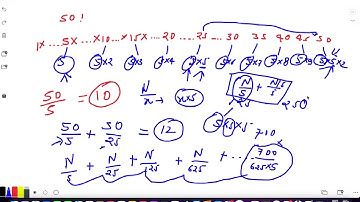 50!
1x ... 5x ... x10 ... x15x ... 20 ..... 25 ... 30 35 40 45 50
5 5x2 5x3 5x4 5x5 5x6 5x7 5x8 5x9 5x5x2
50/5 = 10 N/5 + N/5/5
50/5 + 50/25 = 12 5x5x5 250
710
N/5 + N/25 + N/125 + N/625 + ... 700/625x5